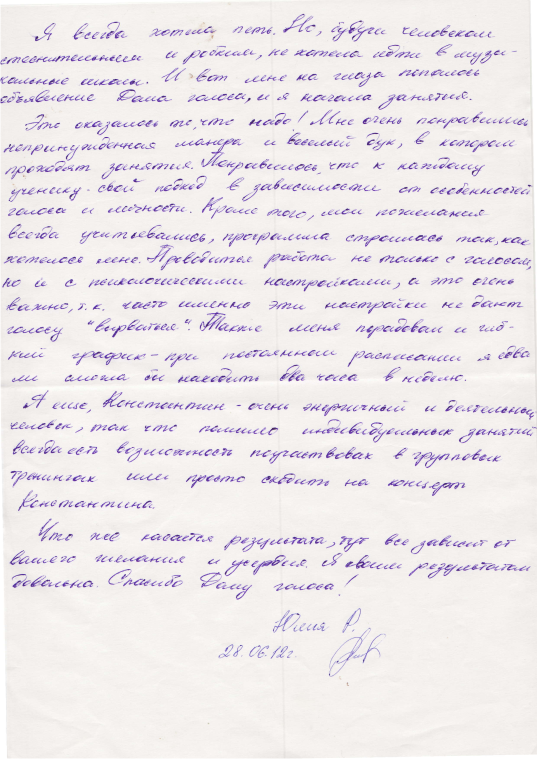 Я всегда хотела петь. Но, будучи человеком
стеснительным и робким, не хотела идти в музы-
кальные школы. И вот мне на глаза попалось
объявление Дома голоса, и я начала занятия.
Это оказалось то, что надо! Мне очень понравились
непринужденная манера и веселый дух, в котором
проходят занятия. Понравилось, что к каждому
ученику - свой подход в зависимости от особенностей
голоса и личности. Кроме того, мои пожелания
всегда учитывались, программа строилась так, как
хотелось мне. Проводится работа не только с голосом,
но и с психологическими настройками, а это очень
важно, т.к. часто именно эти настройки не дают
голосу "вырваться". Также меня порадовал и гиб-
кий график - при постоянном расписании я едва
ли смогла бы находить два часа в неделю.
А еще, Константин - очень энергичный и деятельный
человек, так что помимо индивидуальных занятий
всегда есть возможность поучаствовать в групповых
тренингах или просто сходить на концерты
Константина.
Что же касается результата, тут все зависит от
вашего желания и усердия. Я своим результатом
довольна. Спасибо Дому голоса!
Юлия Р.
28.06.12г.